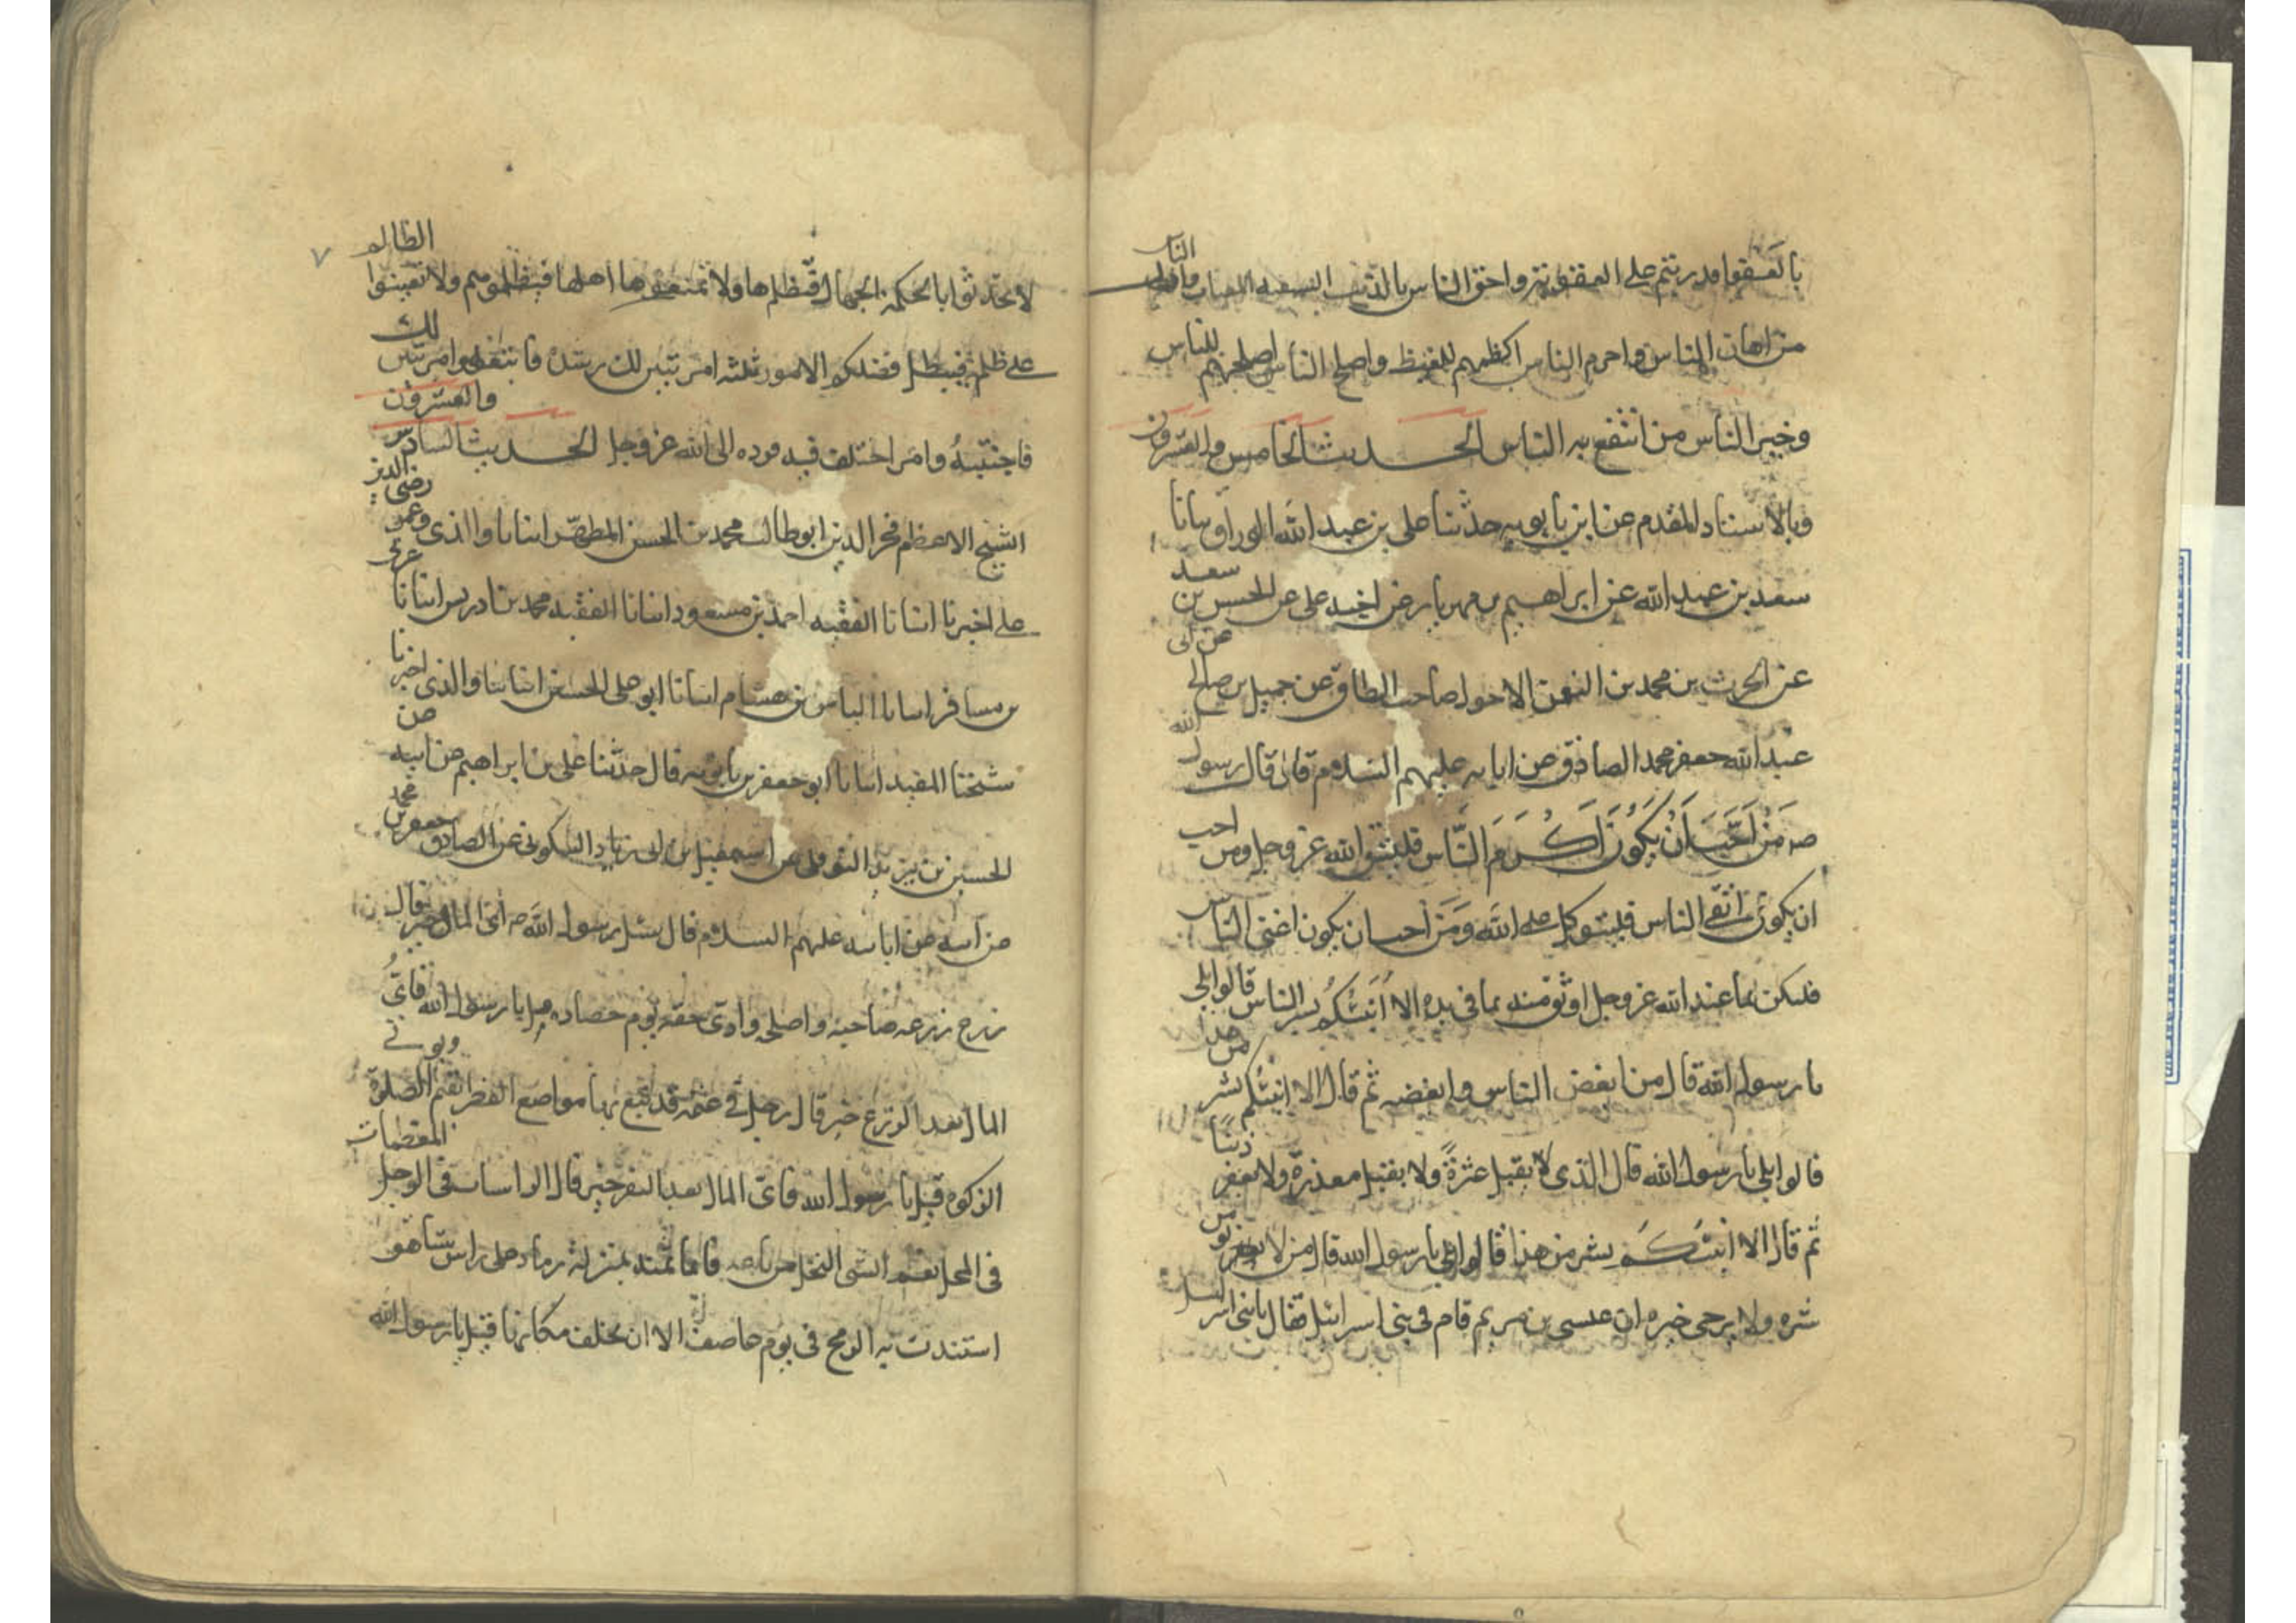 بالعفو اقدرتهم على العقوبة واحق الناس بالذنب السفيه المغتاب واذل الناس
من اهان الناس واحزم الناس اكظمهم للغيظ واصلح الناس اصلحهم للناس
وخير الناس من انتفع به الناس الحديث الخامس والعشرون
وبالاسناد المقدم عن ابن بابويه حدثنا على بن عبد الله الوراق انبانا
سعد بن عبد الله عن ابراهيم بن مهزيار عن اخيه على عن الحسن بن سعيد
عن الحرث بن محمد بن النعمن الاحول صاحب الطاق عن جميل بن صالح عن ابى
عبد الله جعفر محمد الصادق عن ابايه عليهم السلام قال قال رسول الله
صه من احب ان يكون اكرم الناس فليتق الله عز وجل ومن احب
ان يكون اتقى الناس فليتوكل على الله ومن احب ان يكون اغنى الناس
فليكن بما عند الله عز وجل اوثق منه بما فى يده الا انبئكم بشر الناس قالوا بلى
يا رسول الله قال من ابغض الناس وابغضه ثم قال الا انبئكم بشر من هذا
قالوا بلى يا رسول الله قال الذى لا يقبل عثرة ولا يقبل معذرة ولا يغفر ذنبا
ثم قال الا انبئكم بشر من هذا قالوا بلى يا رسول الله قال من لا يومن
شره ولا يرجى خيره ان عيسى بن مريم قام فى بنى اسرائيل فقال يا بنى اسرائيل
٧
لا تحدثوا بالحكمة الجهال فتظلموها ولا تمنعوها اهلها فتظلموهم ولا تعينوا الظالم
على ظلمه فيبطل فضلكم الامور ثلثه امر تبين لك رشده فاتبعه وامر تبين لك
فاجتنبه وامر اختلف فيه فرده الى الله عز وجل الحديث السادس والعشرون
الشيخ الاعظم فخر الدين ابو طالب محمد بن الحسن المطهر انبانا والذى رضى الدين
على اخبرنا انبانا الفقيه احمد بن مسعود انبانا الفقيه محمد بن ادريس انبانا عربى
بن مسافر انبانا الياس بن هشام انبانا ابو على الحسن انبانا والذى اخبرنا
شيخنا المفيد انبانا ابو جعفر بن بابويه قال حدثنا على بن ابراهيم عن ابيه عن
الحسين بن يزيد النوفلى عن اسمعيل بن ابى زياد السكونى عن الصادق جعفر بن محمد
عن ابيه عن ابايه عليهم السلام قال سئل رسول الله صه اى المال خير قال
زرع زرعه صاحبه واصلحه وادى حقه يوم حصاده قيل يا رسول الله فاى
المال بعد الزرع خير قال رجل فى غنمه قد تبع بها مواضع القطر يقيم الصلوة ويوتى
الزكوة قيل يا رسول الله فاى المال بعد البقر خير قال الراسيات فى الوحل المطعمات
فى المحل نعم الشى النخل من باعه فانما ثمنه بمنزلة رماد على راس شاهق
اشتدت به الريح فى يوم عاصف الا ان يخلف مكانها قيل يا رسول الله